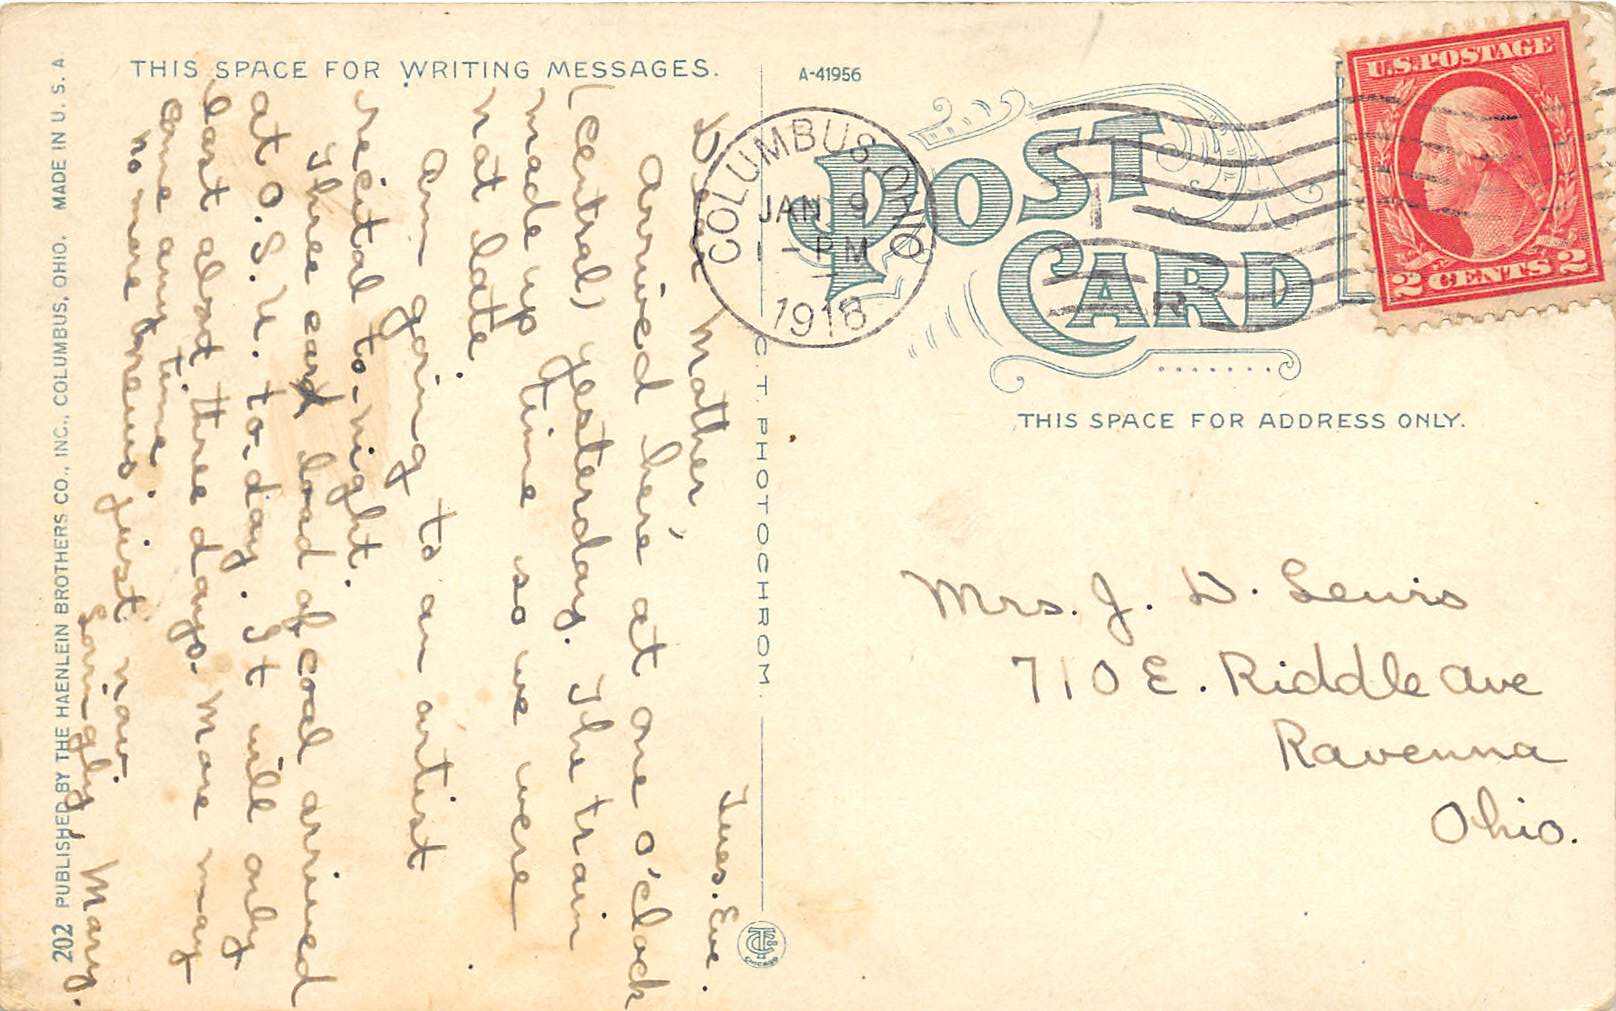 THIS SPACE FOR WRITING MESSAGES.
Tues. Eve.
Dear Mother,
Arrived here at one o'clock
(central) yesterday. The train
made up time so we were
not late.
Am going to an artist
recital to-night.
Three card load of coal arrived
at O.S.U. to-day. It will only
last about three days. More may
come any time.
No more news just now
Lovingly, Mary.
202 PUBLISHED BY THE HAENLEIN BROTHERS CO., INC., COLUMBUS, OHIO. MADE IN U. S. A.
C.T PHOTOCHROM.
CHICAGO
A-41956
POST
CARD
COLUMBUS, OHIO
JAN 9
1 - PM
1918
U.S. POSTAGE
2 CENTS 2
THIS SPACE FOR ADDRESS ONLY.
Mrs. J. D. Lewis
710 E. Riddle Ave
Ravenna
Ohio.